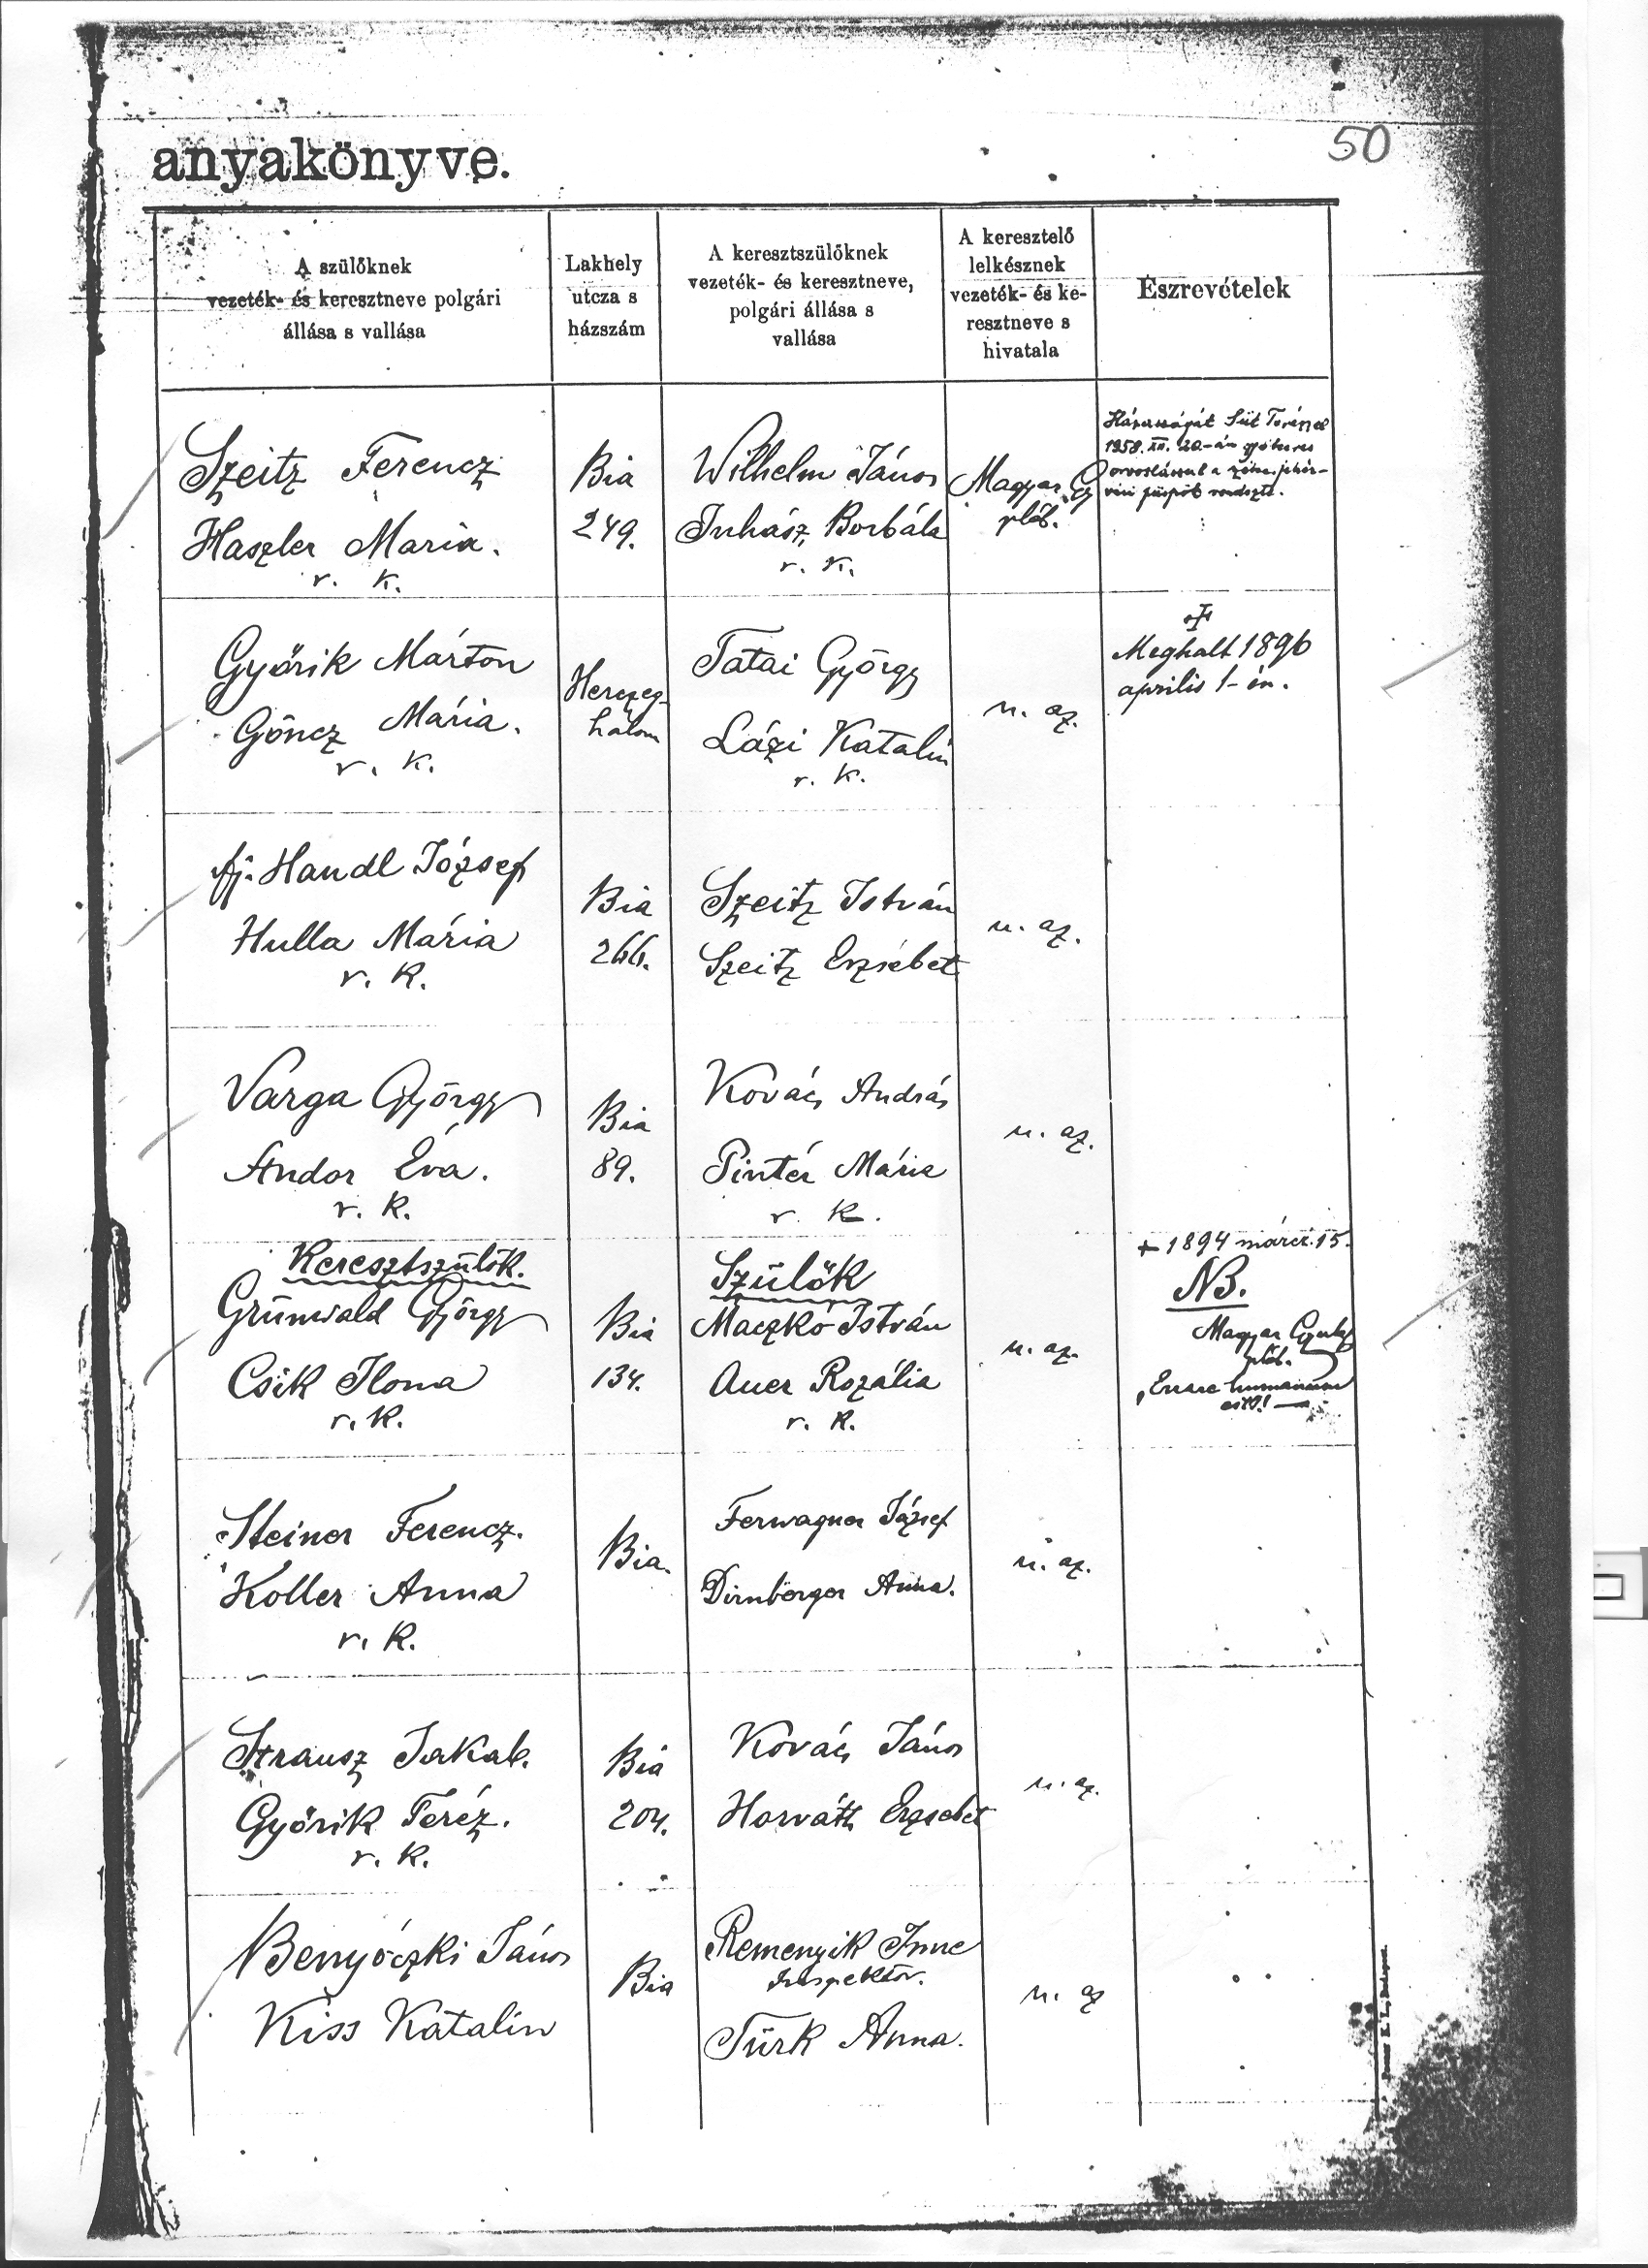 50
anyakönyve.
A szülőknek
vezeték- és keresztneve polgári
állása s vallása
Lakhely
utcza s
házszám
A keresztszülőknek
vezeték- és keresztneve,
polgári állása s
vallása
A keresztelő
lelkésznek
vezeték- és ke-
resztneve s
hivatala
Észrevételek
Szeitz Ferencz
Haszler Maria.
r. k.
Bia
249.
Wilhelm János
Juhász Borbála
r. k.
Magyar Gy
pléb.
Házasságát Süt Terézzel
1958. XII. 20-án gyökeres
orvoslással a
püspök rendezte.
Győrik Márton
Göncz Mária.
r. k.
Herczeg-
halom
Tatai György
Lázi Katalin
r. k.
u. az.
Meghalt 1896
április 1-én.
ifj. Handl József
Hulla Mária
r. k.
Bia
266.
Szeitz István
Szeitz Erzsébet
u. az.
Varga György
Andor Éva.
r. k.
Bia
89.
Kovács András
Pintér Mária
r. k.
u. az.
Keresztszülők.
Grünwald György
Csik Ilona
r. k.
Bia
134.
Szülők
Maczkó István
Auer Rozália
r. k.
u. az.
+ 1894 márcz. 15.
NB.
Magyar Gyula
pléb.
"Errare humanum
est!" —
Steiner Ferencz.
Koller Anna
r. k.
Bia.
Ferwagner József
Dirnberger Anna.
u. az.
Strausz Jakab.
Győrik Teréz.
r. k.
Bia
204.
Kovács János
Horváth Erzsebet
u. az.
Benyóczki János
Kiss Katalin
Bia
Remenyik Imre
Inspektor.
Türk Anna.
u. az